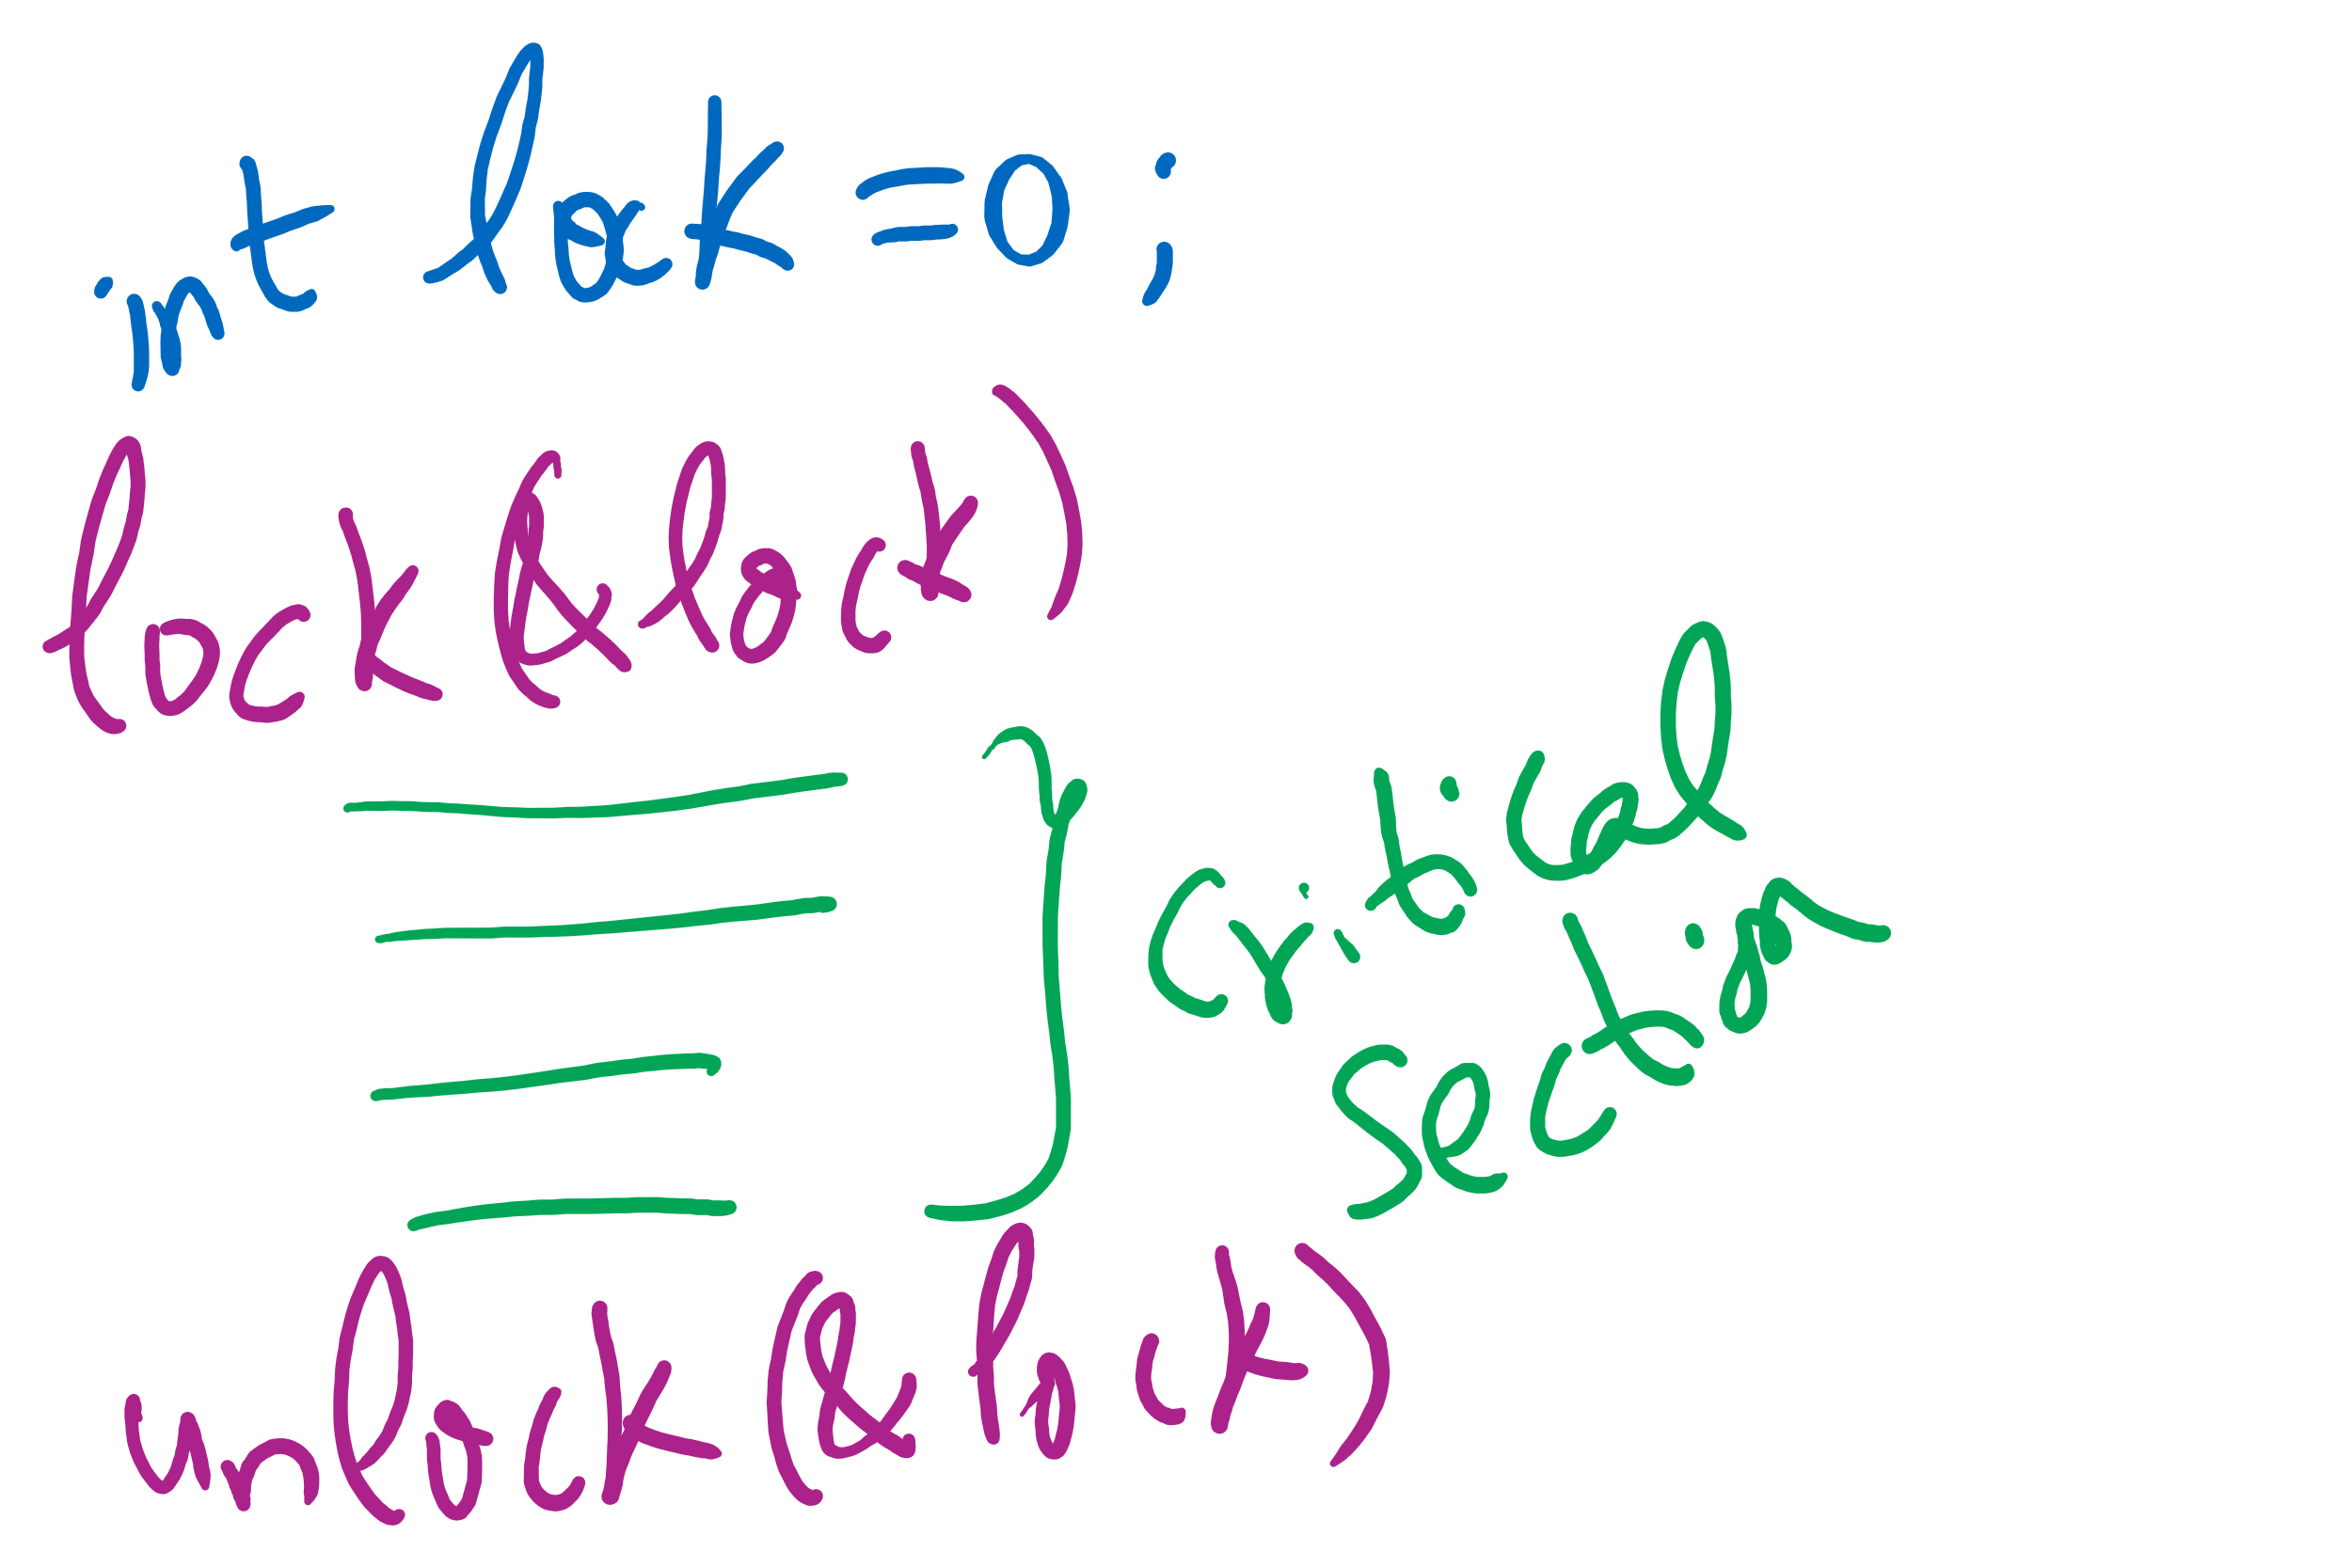 int lock = 0;
lock(&lock)
critical
section
unlock(&lock)